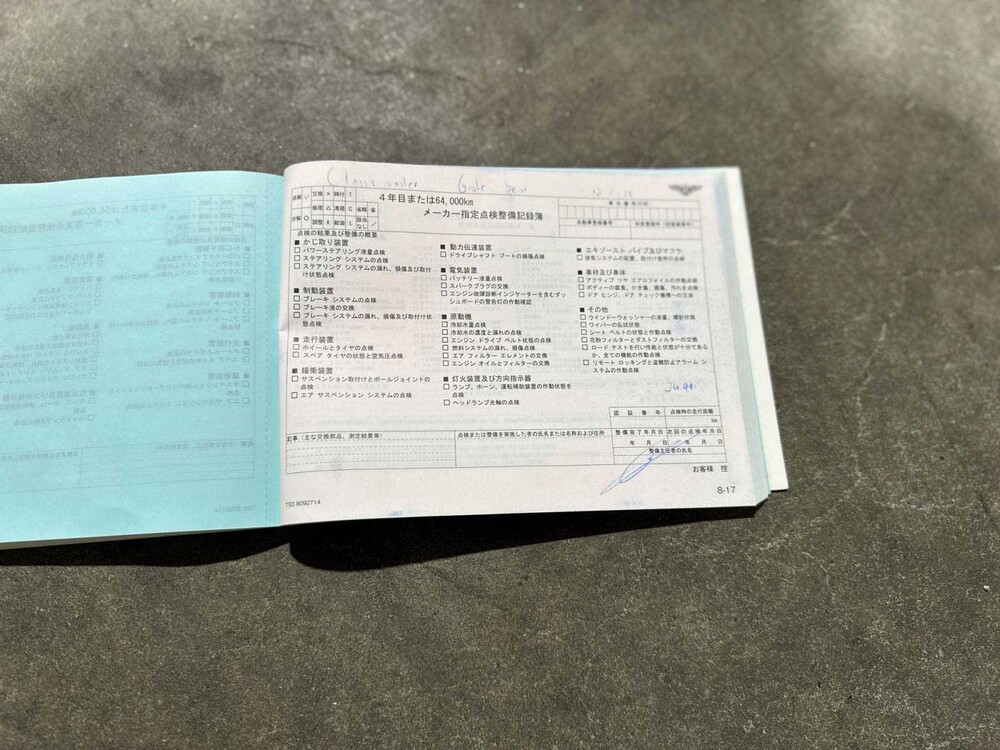 Classic
点検 レ 交換 × 締付 T
分解 ○ 修理 △ 清掃 C 省略 省
調整 A 給油 L 該当なし /
4年目または64,000km
メーカー指定点検整備記録簿
点検の結果及び整備の概要
■ かじ取り装置
□ パワーステアリング液量点検
□ ステアリング システムの点検
□ ステアリング システムの漏れ、損傷及び取付
け状態点検
■ 制動装置
□ ブレーキ システムの点検
□ ブレーキ液の交換
□ ブレーキ システムの漏れ、損傷及び取付け状
態点検
■ 走行装置
□ ホイールとタイヤの点検
□ スペア タイヤの状態と空気圧点検
■ 緩衝装置
□ サスペンション取付けとボールジョイントの
点検
□ エア サスペンション システムの点検
■ 動力伝達装置
□ ドライブシャフト ブートの損傷点検
■ 電気装置
□ バッテリー液量点検
□ スパークプラグの交換
□ エンジン故障診断インジケーターを含むダッ
シュボードの警告灯の作動確認
■ 原動機
□ 冷却水量点検
□ 冷却水の濃度と漏れの点検
□ エンジン ドライブ ベルト状態の点検
□ 燃料システムの漏れ、損傷点検
□ エア フィルター エレメントの交換
□ エンジン オイルとフィルターの交換
■ 灯火装置及び方向指示器
□ ランプ、ホーン、運転補助装置の作動状態を
点検
□ ヘッドランプ光軸の点検
■ エキゾースト パイプ及びマフラ
□ 排気システムの状態、取付け箇所の点検
■ 車枠及び車体
□ アクティブ リヤ エアロフォイルの作動点検
□ ボディーの腐食、かき傷、損傷、汚れを点検
□ ドア ヒンジ、ドア チェック機構への注油
■ その他
□ ウインドーウォッシャーの液量、噴射状態
□ ワイパーの払拭状態
□ シート ベルトの状態と作動点検
□ 花粉フィルターとダストフィルターの交換
□ ロード テストを行い性能と状態が十分である
か、全ての機能の作動点検
□ リモート ロッキングと盗難防止アラーム シ
ステムの作動点検
認 証 番 号 点検時の走行距離
km
整備完了年月日 次回の点検年月日
年 月 日 年 月 日
整備主任者の氏名
記事（主な交換部品、測定結果等）
点検または整備を実施した者の氏名または名称および住所
お客様 控
TSD 8092714
8-17